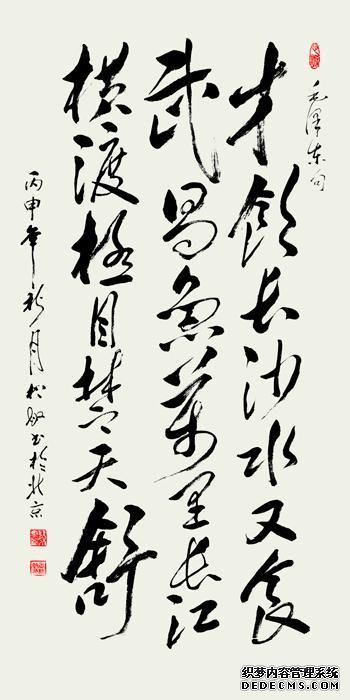 毛泽东句
才飲长沙水又食
武昌魚萬里长江
横渡极目楚天舒
丙申年秋月书於北京
织梦内容管理系统
DEDECMS.COM